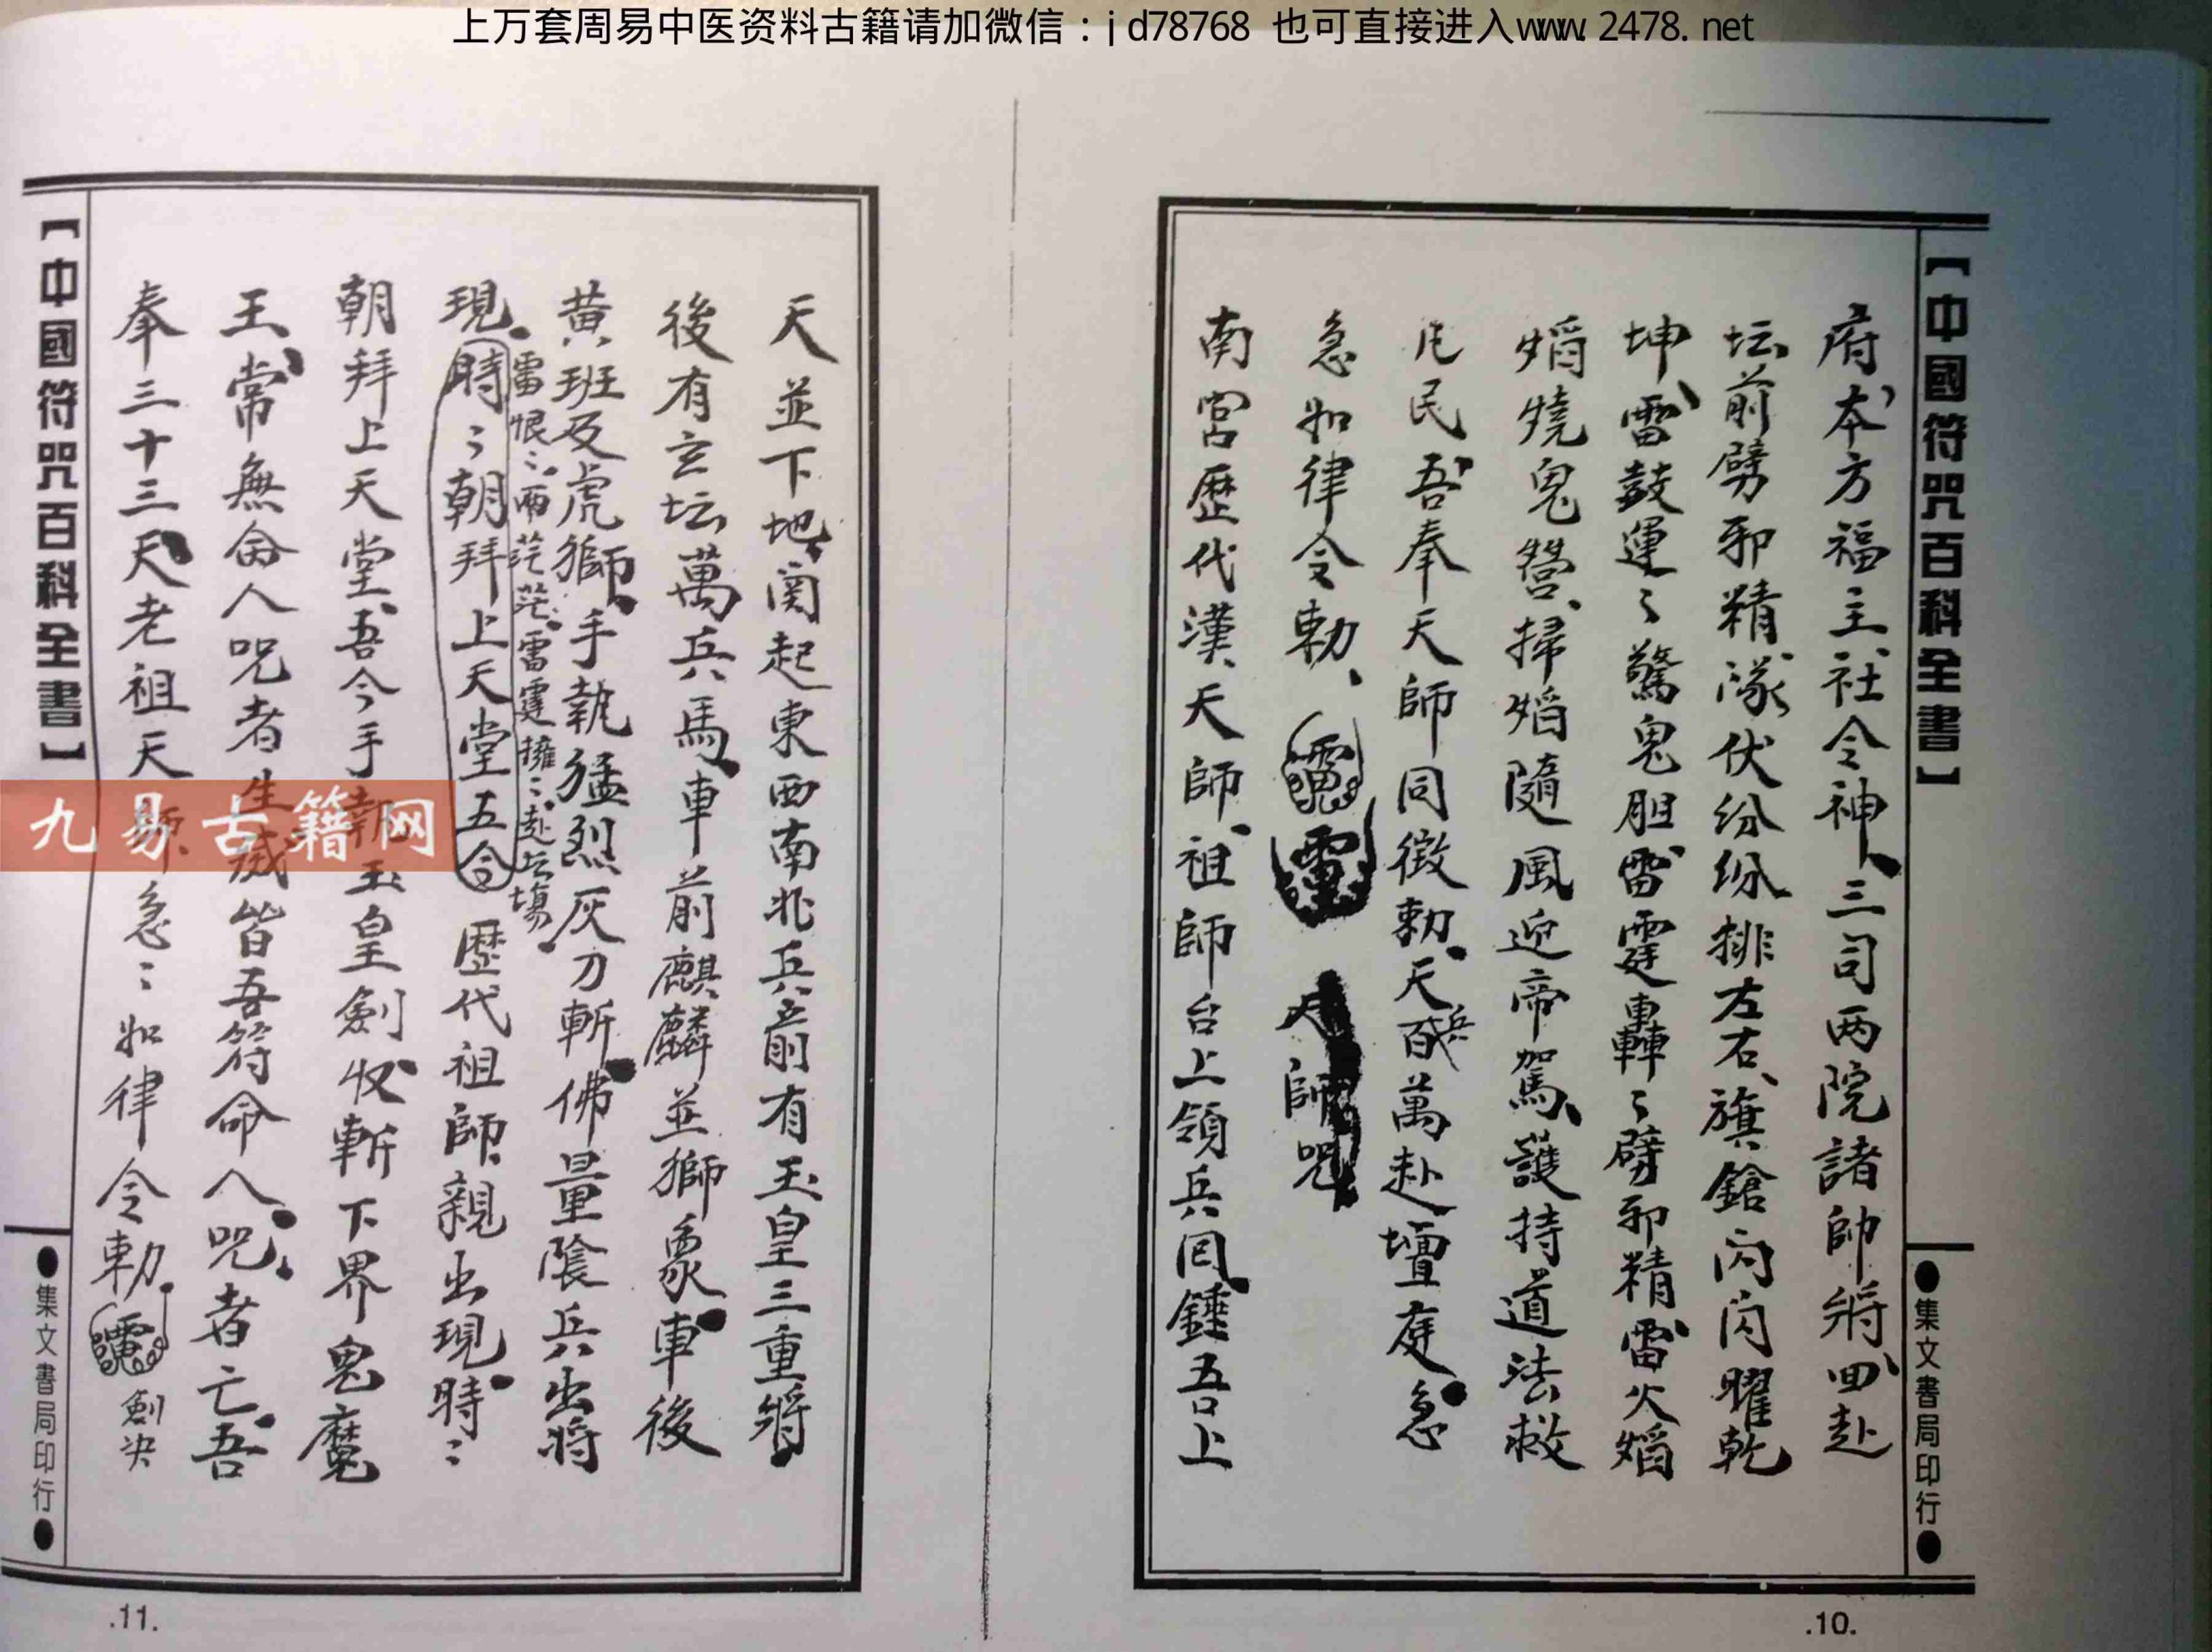 上万套周易中医资料古籍请加微信：jd78768 也可直接进入www.2478.net
【中國符咒百科全書】
●集文書局印行●
府、本方福主、社令神、三司两院諸帥將、回赴
坛前劈邪精、隊伏纷纷排左右、旗鎗闪闪曜乾
坤、雷鼓運〻驚鬼胆、雷霆轟〻劈邪精、雷火熖
熖燒鬼營、掃熖隨風迎帝駕、護持道法救
民、吾奉天師同徵勅、天兵百萬赴壇庭、急
急如律令勅、
天師咒
南宮歷代漢天師、祖師台上領兵回、錘吾上
.10.
天並下地、関起東西南北兵、前有玉皇三重將、
後有玄坛萬兵馬、車前麒麟並獅象、車後
黄班及虎獅、手執猛烈灰刀斬、佛量陰兵出將
雷恨〻、雨茫茫茫、雷霆擁〻赴坛場、
現、時〻朝拜上天堂五合歷代祖師親出現、時〻
朝拜上天堂、吾今手執玉皇劍、收斬下界鬼魔
王、常無命人咒者生滅皆吾符命入咒、者亡、吾
奉三十三天老祖天師急〻如律令勅
劍决
【中國符咒百科全書】
●集文書局印行●
.11.
九易古籍网